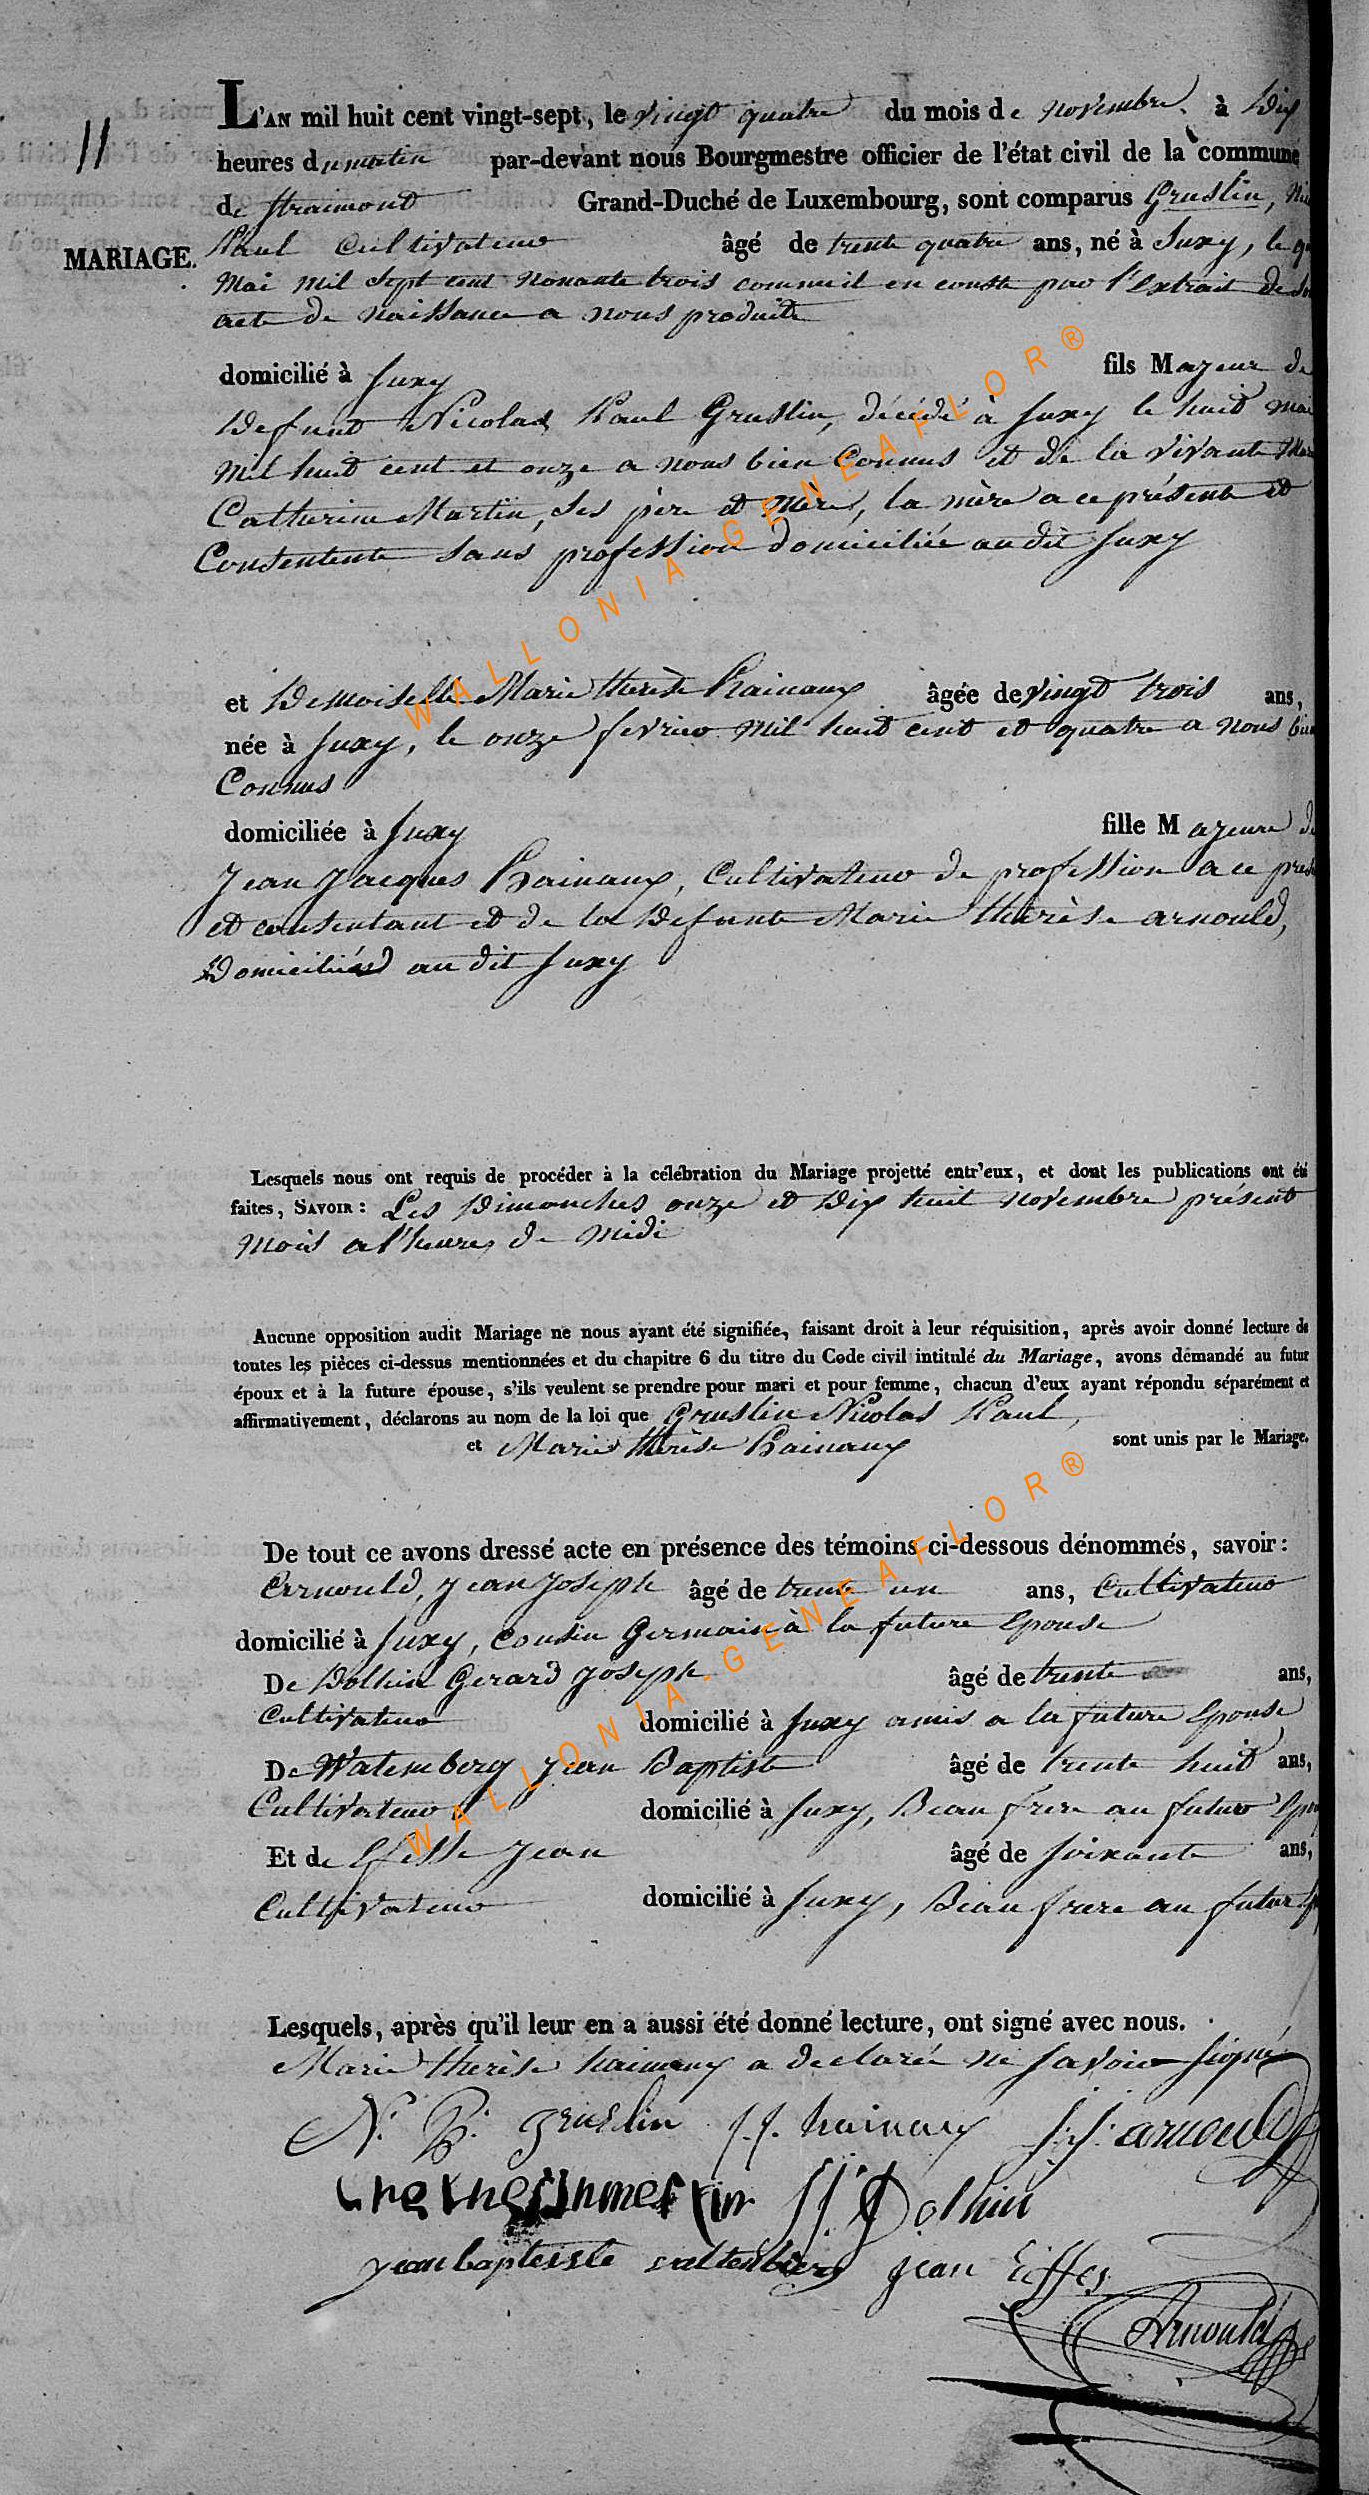 L'AN mil huit cent vingt-sept, le vingt quatre du mois de novembre à Dix
11
heures du matin par-devant nous Bourgmestre officier de l'état civil de la commune
de Straimont Grand-Duché de Luxembourg, sont comparus Gruslin,
MARIAGE.
Paul Cultivateur âgé de trente quatre ans, né à Suxy, le
Mai mil sept cent nonante trois comme il en conste par l'extrait de
acte de naissance a nous produite
domicilié à Suxy fils Majeur de
Defunt Nicolas Paul Gruslin, décédé à Suxy le huit mai
mil huit cent et onze a nous bien Connus et de la vivante
Catherine Martin, ses père et mère, la mère a ce présente et
Consentente sans profession domiciliée au dit Suxy
et Demoiselle Marie thérèse Hainaux âgée de vingt trois ans,
née à Suxy, le onze fevrier mil huit cent et quatre a nous bien
Connus
domiciliée à Suxy fille Majeure de
Jean Jacques Hainaux, Cultivateur de profession a ce
et consentant et de la Defunte Marie thérèse arnould,
Domiciliés au dit Suxy
Lesquels nous ont requis de procéder à la célébration du Mariage projetté entr'eux, et dont les publications ont été
faites, SAVOIR : Les Dimanches onze et Dix huit novembre présent
mois a l'heure de midi
Aucune opposition audit Mariage ne nous ayant été signifiée, faisant droit à leur réquisition, après avoir donné lecture de
toutes les pièces ci-dessus mentionnées et du chapitre 6 du titre du Code civil intitulé du Mariage, avons démandé au futur
époux et à la future épouse, s'ils veulent se prendre pour mari et pour femme, chacun d'eux ayant répondu séparément et
affirmativement, déclarons au nom de la loi que Gruslin Nicolas Paul,
et Marie thérèse Hainaux sont unis par le Mariage.
De tout ce avons dressé acte en présence des témoins ci-dessous dénommés, savoir :
Arnould, Jean Joseph âgé de trente un ans, Cultivateur
domicilié à Suxy, Cousin Germain à la future Epouse
De Dolhin Gerard Joseph âgé de trente ans,
Cultivateur domicilié à Suxy amis a la future Epouse
De Watemberg Jean Baptiste âgé de trente huit ans,
Cultivateur domicilié à Suxy, Beau frere au futur
Et de Jean âgé de soixante ans,
Cultivateur domicilié à Suxy, Beau frere au futur
Lesquels, après qu'il leur en a aussi été donné lecture, ont signé avec nous.
Marie thérèse hainaux a declaré ne savoir signé
N. P. gruslin J. J. hainaux J. J. arnould
Dolhin
jean baptiste jean Eiffes
Arnould
WALLONIA-GENEAFLOR®
WALLONIA-GENEAFLOR®